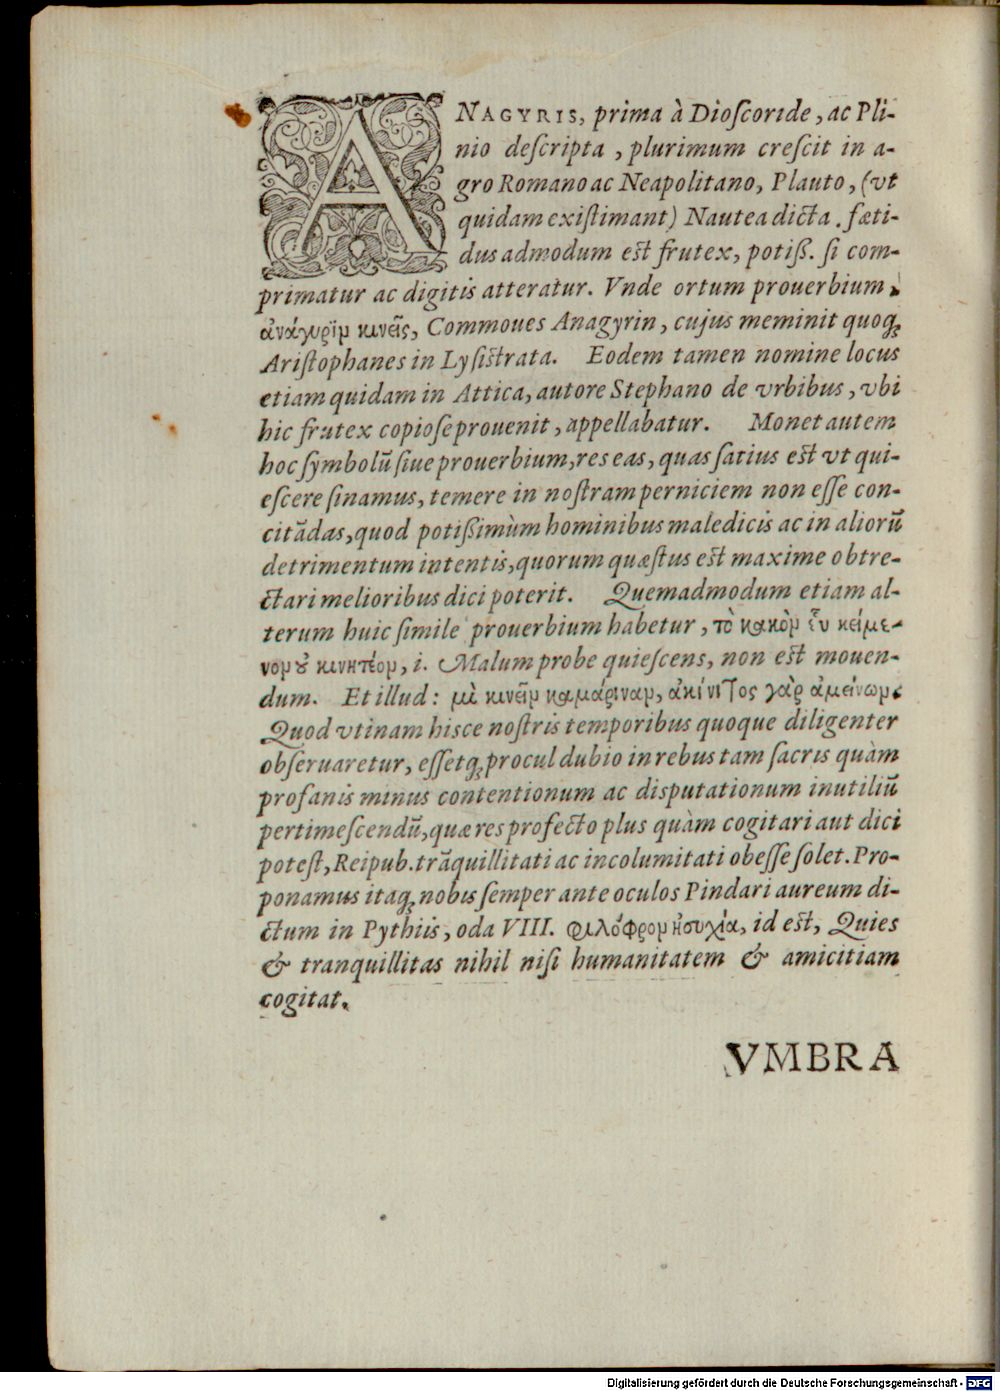 ANAGYRIS, prima à Dioſcoride, ac Pli-
nio deſcripta, plurimum creſcit in a-
gro Romano ac Neapolitano, Plauto, (vt
quidam exiſtimant) Nautea dicta. fæti-
dus admodum eſt frutex, potiß. ſi com-
primatur ac digitis atteratur. Vnde ortum prouerbium,
ἀνάγυρῐμ κινεῖς, Commoues Anagyrin, cujus meminit quoq;
Ariſtophanes in Lyſiſtrata. Eodem tamen nomine locus
etiam quidam in Attica, autore Stephano de vrbibus, vbi
hic frutex copioſe prouenit, appellabatur. Monet autem
hoc ſymbolũ ſiue prouerbium, res eas, quas ſatius eſt vt qui-
eſcere ſinamus, temere in noſtram perniciem non eſſe con-
citãdas, quod potißimùm hominibus maledicis ac in aliorũ
detrimentum intentis, quorum quæſtus eſt maxime obtre-
ctari melioribus dici poterit. Quemadmodum etiam al-
terum huic ſimile prouerbium habetur, τὸ κακὸμ ἐυ κείμε-
νομ ȣ κινητέομ, i. Malum probe quieſcens, non eſt mouen-
dum. Et illud: μὲ κινεῖμ καμάριναμ, ἀκίνιτος γὰρ ἀμείνωμ.
Quod vtinam hisce noſtris temporibus quoque diligenter
obſeruaretur, eſſetq; procul dubio in rebus tam ſacris quàm
profanis minus contentionum ac disputationum inutiliũ
pertimeſcendũ, quæ res profecto plus quàm cogitari aut dici
poteſt, Reipub. trãquillitati ac incolumitati obeſſe ſolet. Pro-
ponamus itaq; nobis ſemper ante oculos Pindari aureum di-
ctum in Pythiis, oda VIII. φιλόφρομ ἡσυχία, id eſt, Quies
& tranquillitas nihil niſi humanitatem & amicitiam
cogitat.
VMBRA
Digitalisierung gefördert durch die Deutsche Forschungsgemeinschaft - DFG